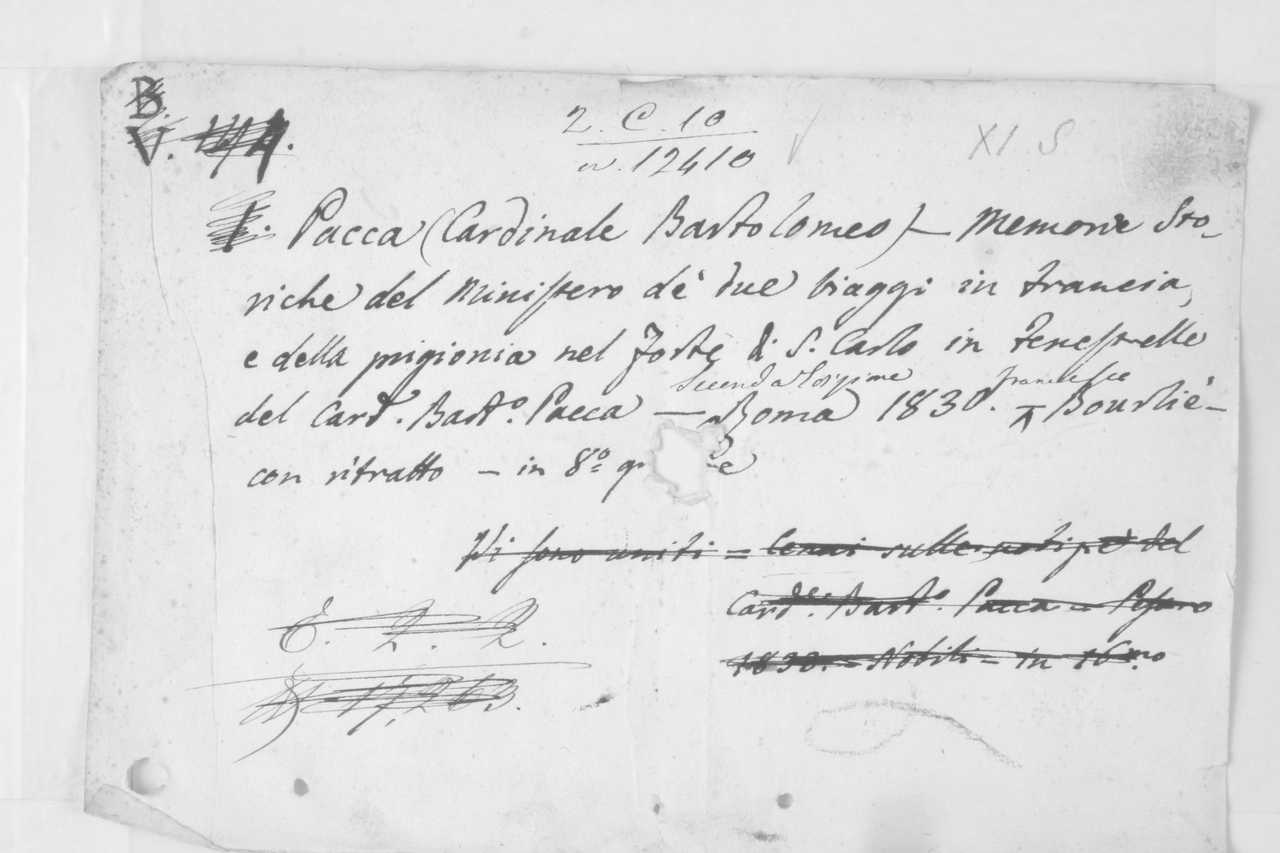 B.
V.
2. C. 10
n. 12410
XI S
1. Pacca (Cardinale Bartolomeo) — Memorie Sto-
riche del Ministero de' due viaggi in Francia,
e della prigionia nel Forte di S. Carlo in Fenestrelle
Seconda Edizione francesco
del Card. Bart.º Pacca — Roma 1830. Bourliè —
con ritratto — in 8.º
Vi sono uniti = Cenni sulle del
Card. Bart.º Pacca — Pesaro
1830. — Nobili — in 16.mo
E. 2. 2.
17,263.